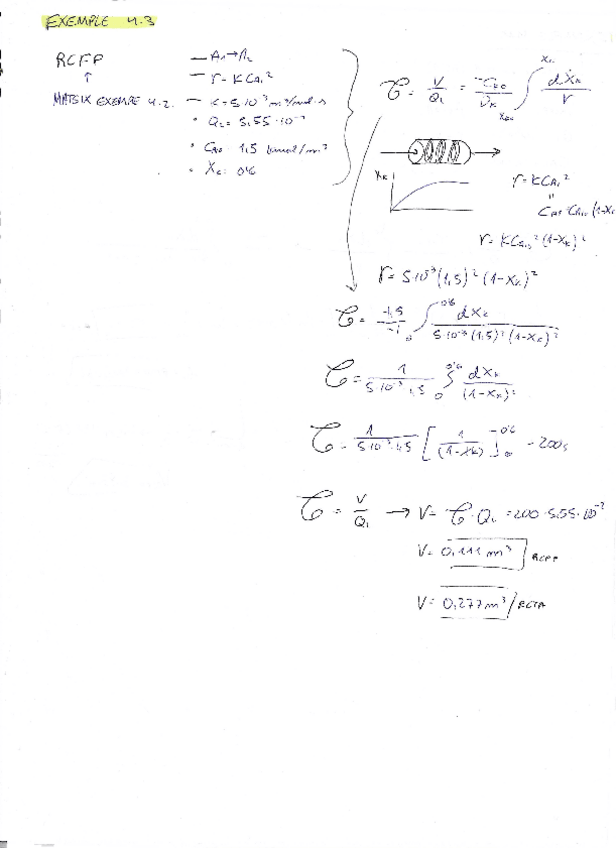 EXEMPLE 4.3
RCFP
MATEIX EXEMPLE 4.2.
— A₁→A₂
— r = KCA₁²
— K = 5·10⁻³ m³/kmol·s
• Q₁ = 5,55·10⁻⁴
• Cₖ₀ = 1,5 kmol/m³
• Xₖ = 0'6
τ = V/Q₁ = -Cₖ₀/νₖ ∫ dXₖ/r
Xₖ
r = KCA₁²
r = KCA₁₀² (1-Xₖ)²
r = 5·10⁻³ (1,5)² (1-Xₖ)²
τ = -1,5/-1 ∫₀^0'6 dXₖ/5·10⁻³ (1,5)² (1-Xₖ)²
τ = 1/5·10⁻³·1,5 ∫₀^0'6 dXₖ/(1-Xₖ)²
τ = 1/5·10⁻³·1,5 [1/(1-Xₖ)]₀^0'6 = 200s
τ = V/Q₁ → V = τ·Q₁ = 200·5,55·10⁻⁴
V = 0,111 m³ RCFP
V = 0,277 m³ / RCTA